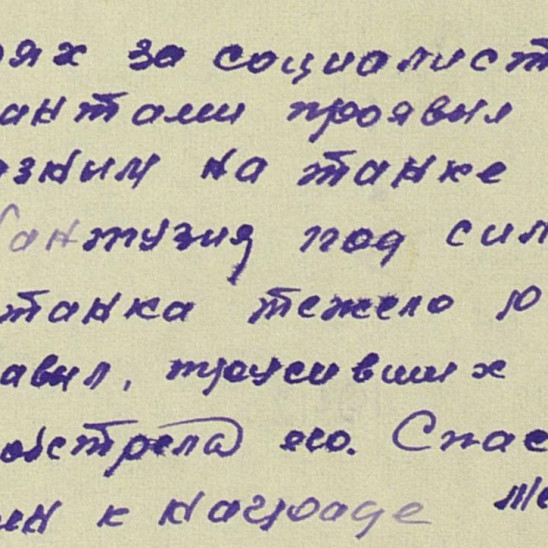 оях за социалист
антами проявил
язным на танке
Кантузия под сил
танка тежело р
авыл, трусивших
обстрела его. Спас
ен к награде ме